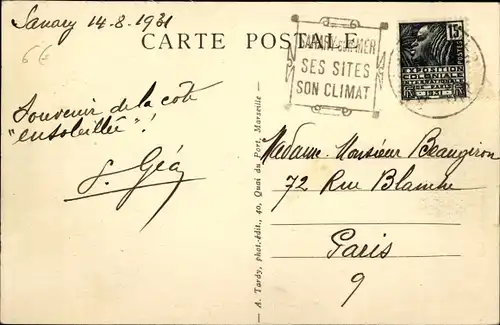 Sanary 14-8-1931
6€
CARTE POSTALE
SANARY-SUR-MER
SES SITES
SON CLIMAT
15c
POSTES
Souvenir de la côte
"ensoleillée"!
Madame. Monsieur Beaugiron
72 Rue Blanche
Paris
9
A. Tardy, phot.-édit., 40, Quai du Port, Marseille -